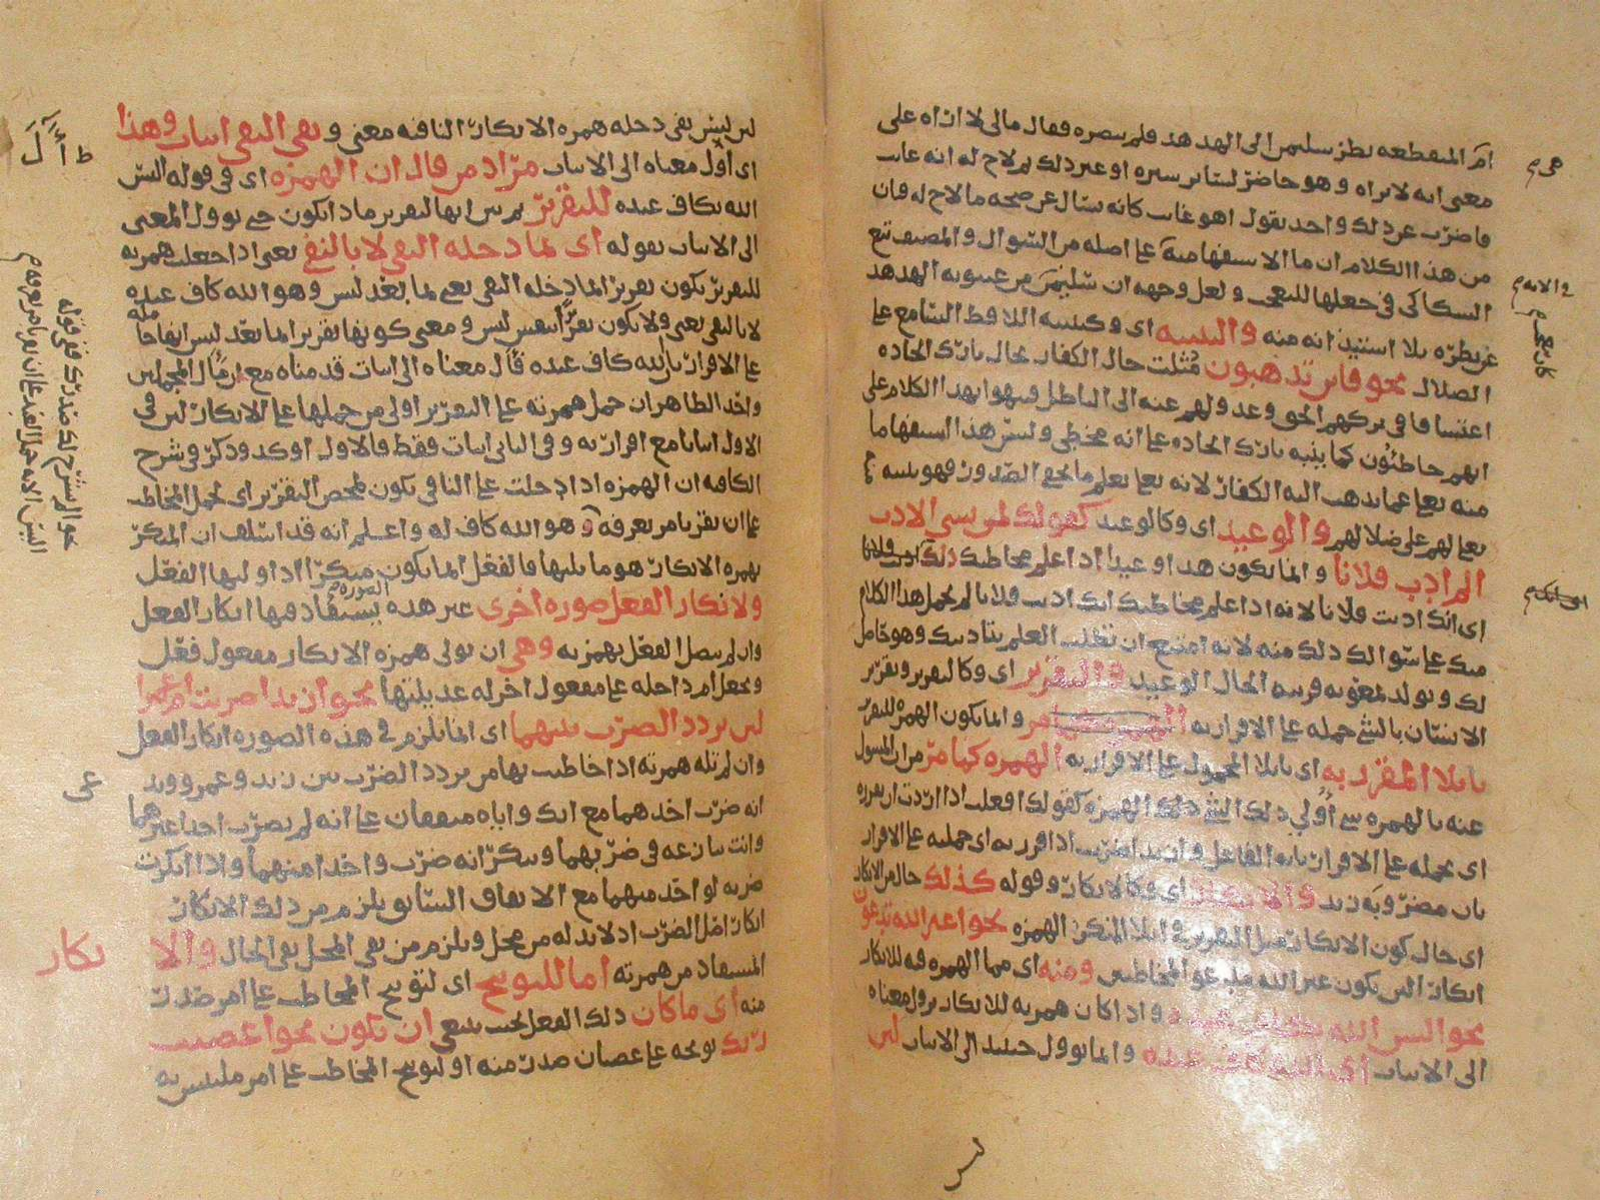 ام المنقطعه نظر سليمن الى الهدهد فلم يبصره فقال مالى لا اراه على
معنى انه لا يراه وهو حاضر لساتر ستره او غير ذلك ثم لاح له انه غايب
فاضرب عن ذلك واخذ يقول اهو غايب كانه يسال عن صحه ما لاح له فان
من هذا الكلام ان ما الاستفهاميه على اصله من السوال والمصنف تبع
السكاكى فى جعلها للتعجب و لعل وجهه ان سليمن غيبوبه الهدهد
عن نظره بلا استيذانه منه والتنبيه اى وكتنبيه السامع على
الضلال نحو فاين تذهبون مثلت حال الكفار بحال تارك الجاده
اعتسافا فى تركهم الحق وعدولهم عنه الى الباطل ونبهوا بهذا الكلام على
انهم خاطئون كما ينبه تارك الجاده على انه مخطى وليس هذا استفهاما
منه تعالى عما يذهب اليه الكفار لانه تعالى يعلم ما تخفى الصدور فهو تنبيه
تعالى لهم على ضلالهم والوعيد اى وكالوعيد كقولك لمن يسى الادب
الم ادب فلانا وانما يكون هذا وعيدا اذا علم مخاطبك ذلك
اى انك ادبت فلانا لانه اذا علم مخاطبك انك ادبت فلانا لم يحمل هذا الكلام
منك على سوالك ذلك منه لانه امتنع ان تطلب العلم بتاديبك وهو حاصل
لك ويولد بمعونه قرينه الحال الوعيد والتقرير اى وكالتقرير وتقرير
الانسان بالشى حمله على الاقرار به وانما يكون الهمزه للتقرير
بايلا المقرر به اى بايلا المحمول على الاقرار به الهمزه كما مر من ان المسول
عنه بالهمزه شى اولى ذلك الشى تلك الهمزه كقولك افعلت اذا اردت ان تقرره
اى تحمله على الاقرار بانه الفاعل وازيدا ضربت اذا قررته اى حملته على الاقرار
بان مضروبه زيد والانكار اى وكالانكار وقوله كذلك حال من الانكار
اى حال كون الانكار مثل التقرير فى ايلا المنكر الهمزه نحو اغير الله تدعون
انكار ان يكون غير الله مدعو المخاطبين ومنه اى مما الهمزه فيه للانكار
نحو اليس الله بكاف عبده واذا كان همزته للانكار يوول معناه
الى الاثبات اى الله كاف عبده وانما يوول حينئذ الى الاثبات لان
ليس
لان ليس نفى دخله همزه الانكار النافيه معنى ونفى النفى اثبات وهذا
اى اول معناه الى الاثبات مراد من قال ان الهمزه اى فى قوله اليس
الله بكاف عبده للتقرير ثم بين انها لتقرير ماذا يكون حتى يوول المعنى
الى الاثبات بقوله اى بما دخله النفى لا بالنفى يعنى اذا جعلت همزته
للتقرير تكون تقريرا لما دخله النفى يعنى لما بعد ليس وهو الله كاف عبده
لا بالنفى يعنى ولا يكون تقريرا لنفس ليس ومعنى كونها تقريرا لما بعد ليس انها حامله
على الاقرار بان الله كاف عبده قال معناه الى اثبات قدمناه مع ان مال المحملين
واحد الظاهر ان حمل همزته على التقرير اولى من حملها على الانكار لان فى
الاول اثباتا مع اقرار به وفى الثانى اثبات فقط فالاول اوكد وذكر فى شرح
الكافيه ان الهمزه اذا دخلت على النافى تكون لمحض التقرير اى لحمل المخاطب
على ان يقر بامر يعرفه وهو الله كاف له واعلم انه قد اسلف ان المنكر
بهمزه الانكار هو ما يليها فالفعل انما يكون منكرا اذا وليها الفعل
ولانكار الفعل صوره اخرى غير هذه الصوره يستفاد منها انكار الفعل
وان لم يتصل الفعل بهمزته وهى ان تولى همزه الانكار مفعول فعل
وتجعل ام داخله على مفعول اخر له عديلتها نحو ازيدا ضربت ام عمرا
لمن يردد الضرب بينهما اى انما يلزم فى هذه الصوره انكار الفعل
وان لم تله همزته اذا خاطبت بها من يردد الضرب بين زيد وعمرو ويدعى
انه ضرب احدهما مع انك واياه متفقان على انه لم يضرب احدا غيرهما
وانت تنازعه فى ضربهما وتنكر انه ضرب واحدا منهما واذا انكرت
ضربه لواحد منهما مع الاتفاق السابق يلزم من ذلك الانكار
انكار اصل الضرب اذ لا بد له من محل ويلزم من نفى المحل نفى الحال والانكار
المستفاد من همزته اما للتوبيخ اى لتوبيخ المخاطب على امر صدر
منه اى ما كان ذلك الفعل بحيث ينبغى ان يكون نحو اعصيت
ربك توبخه على عصيان صدر منه او لتوبيخ المخاطب على امر ملتبس به